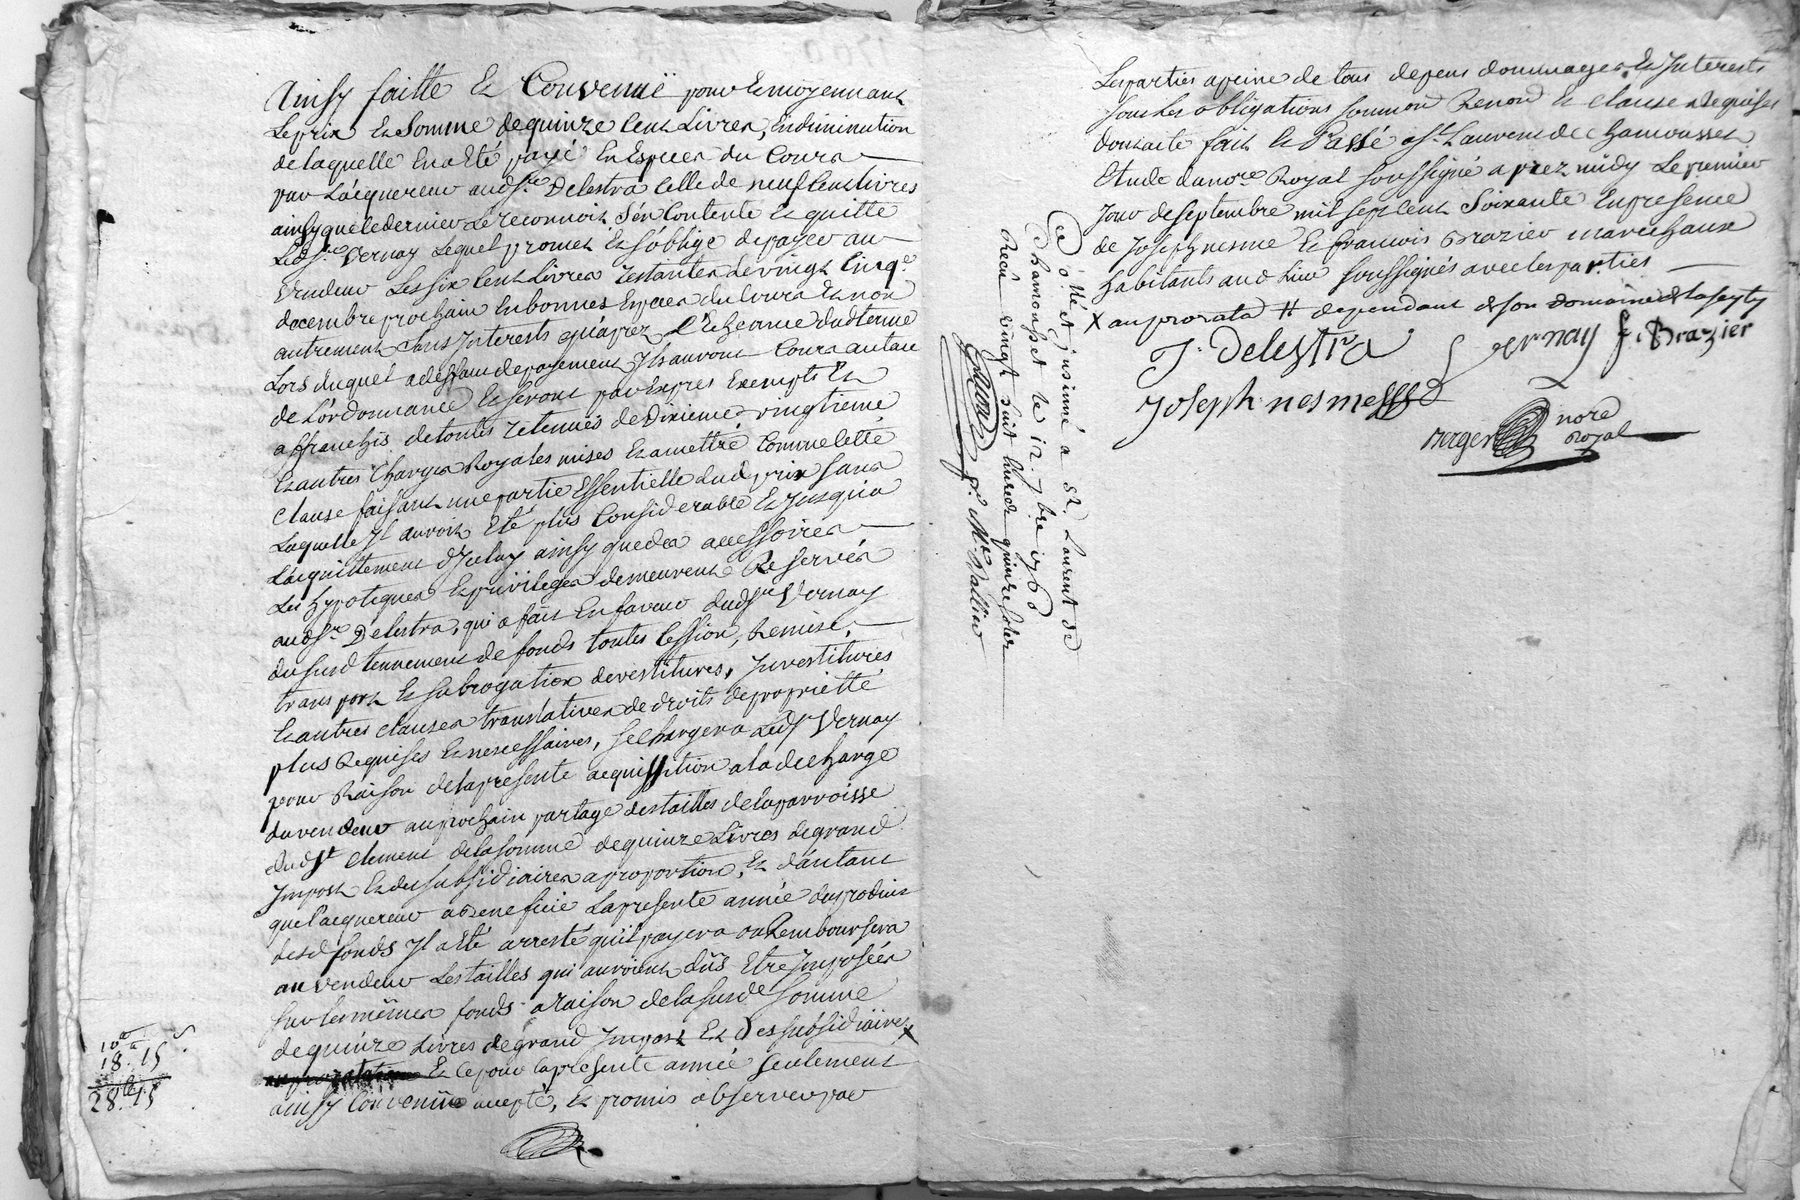 ainsy faitte et Convenuë pour et moyennant
Le prix et Somme de quinze Cent Livres, En diminution
de laquelle En a Eté payé En Especes du Cours
par L'acquereur aud Sr. Delestra Celle de neuf Cent livres
ainsy que le dernier Le reconnoit S'en Contente et quitte
Led Sr. Vernay Lequel promet Et s'oblige de payer au
Vendeur Les Six Cent Livres restantes Le vingt Cinq.e
decembre prochain En bonnes Especes du Cours Et non
autrement Sans Interests qu'aprez L'Echeance dud terme
Lors duquel a deffaut de payement Ils auront Cours au taux
de L'ordonnance Et seront par Exprez Exempts Et
affranchis de toutes retenües de Dixieme vingtieme
Et autres Charges Royales mises Et a mettre Comme Cette
clause faisant une partie Essentielle dud prix sans
Laquelle Il auroit Eté plus Considerable Et Jusqu'a
L'acquittement d'Iceluy ainsy que des accessoires
Les hypoteques Et privileges demeurent Reservés
aud Sr. Delestra, qui a fait En faveur dud Sr Vernay
du susd tennement de fonds toutes Cession, Remise,
transport Et subrogation devestitures, Investitures
Et autres clauses translatives de droits de proprietté
plus Requises Et necessaires, se Chargera Led Sr Vernay
pour Raison de la presente acquisition a la decharge
du vendeur au prochain partage des tailles de la parroisse
dud St Clement de la somme de quinze Livres de grand
Impost Et des subsidiaires a proportion, Et d'autant
que L'acquereur a beneficié La presente année des produits
desd fonds Il a Eté arresté qu'il payera ou Remboursera
au vendeur Les tailles qui auroient dûs Etre Imposées
sur les mêmes fonds a raison de la susde Somme
de quinze Livres de grand Impost Et des subsidiaires X
Et ce pour la presente année seulement
ainsy Convenu accepté, Et promis observer par
18. 15
28. 15
Les parties a peine de tous depens dommages Et Interests
sous Les obligations soumon Renon Et clauses Requises
dont acte fait Et Passé a St. Laurent de Chamousset
Etude du nore. Royal soussigné aprez midy Le premier
Jour de septembre mil sept Cent soixante En presence
de Joseph nesme Et francois Brazier marechaux
habitants aud Lieu soussignés avec les parties
X au prorata # dependant de son domaine de
J. Delestra Vernay f. Brazier
Joseph nesme
Berger nore Royal
Cô llé et insinué a St. Laurent de
Chamousset le 12. 7bre 1760
Recu vingt huit Livres quinze sols